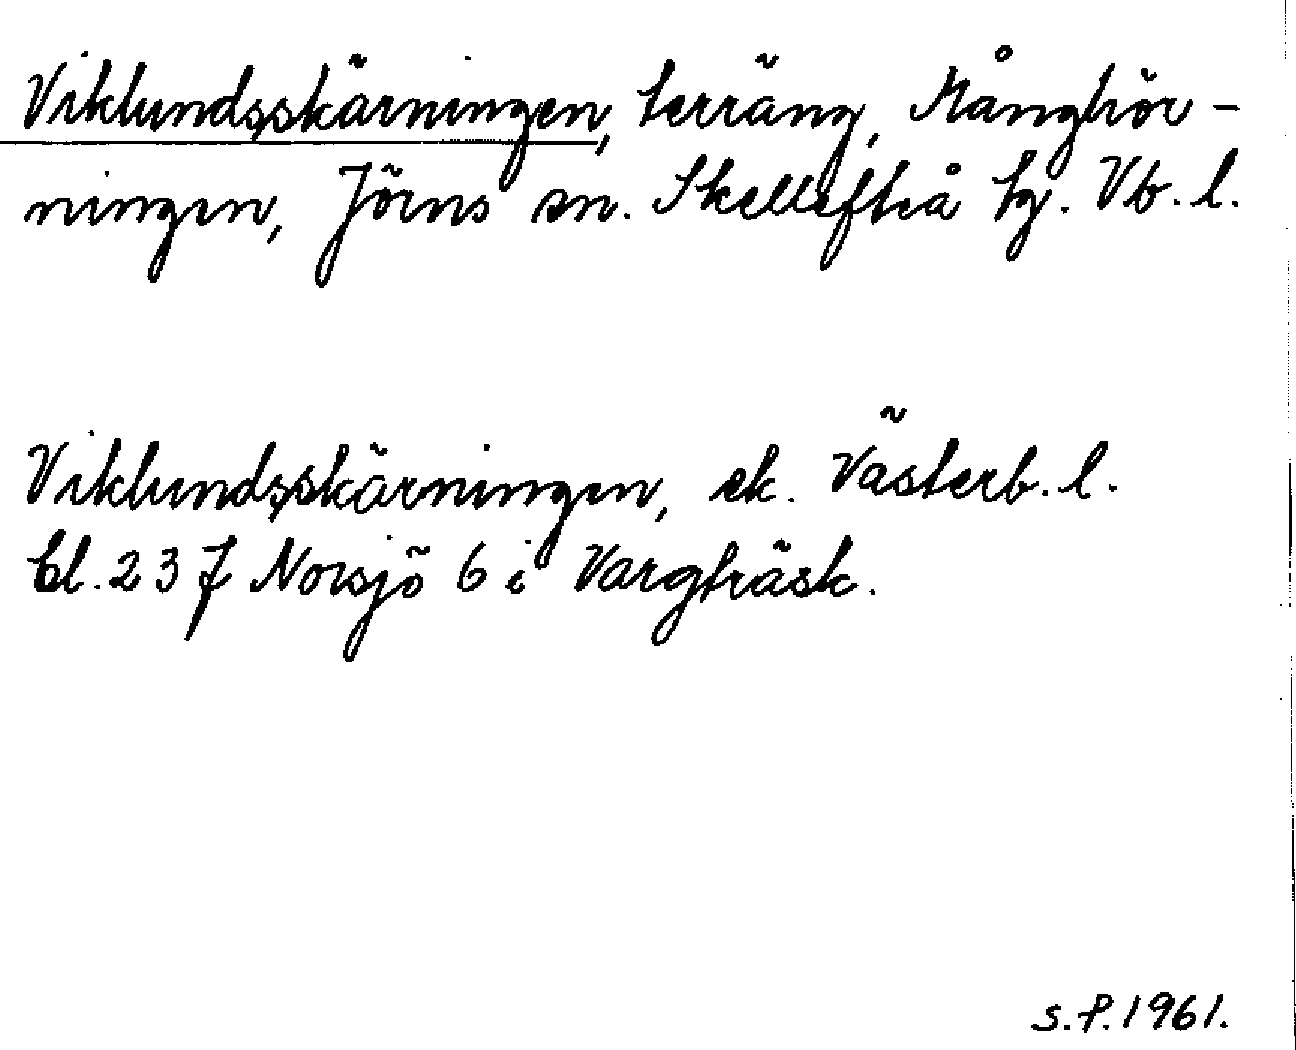 Viklundsskärningen, terräng, Månghör-
ningen, Jörns sn. Skellefteå tg. Vb. l.
Viklundsskärningen, ek. Västerb. l.
bl. 23 J Norsjö 6 i Vargträsk.
S.P. 1961.